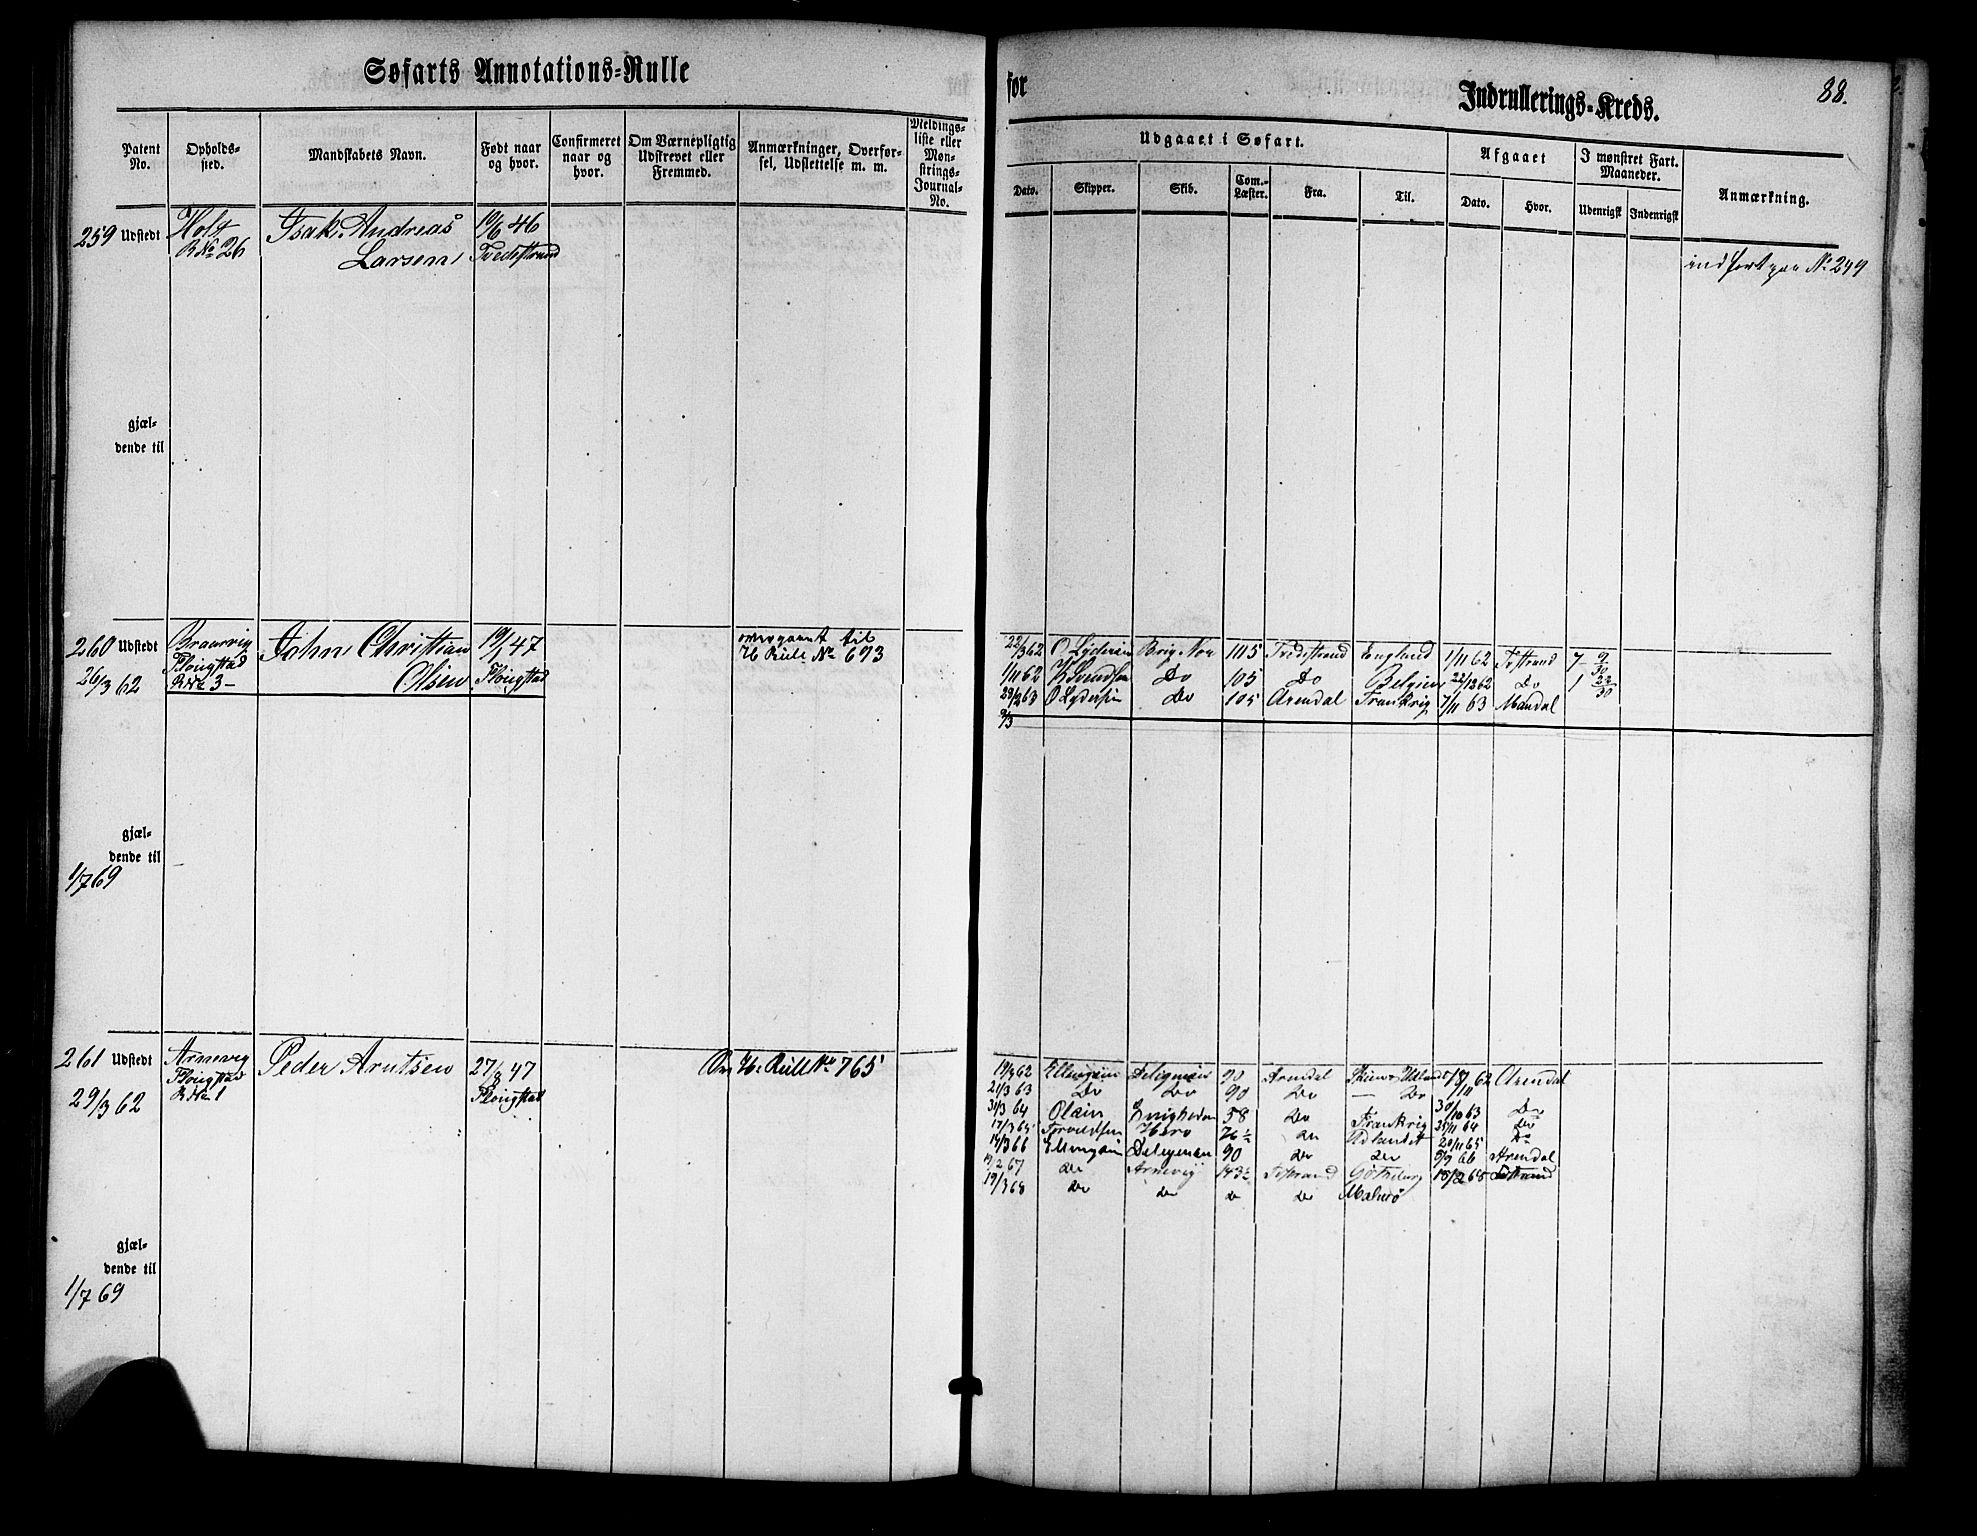 Søfarts Annotations-Rulle
Patent No.
Opholds-sted.
Mandskabets Navn.
Født naar og hvor.
Confirmeret naar og hvor.
Om Værnepligtig Udskrevet eller Fremmed.
Anmærkninger, Overførsel, Udslettelse m. m.
Meldings-liste eller Mønstrings-Journal-No.
259 Udstedt
Holt
R No 26
Isak Andreas
Larsen
19/6 46
Tvedestrand
gjæl-
dende til
260 Udstedt
26/3 62
Flougstad
R No 3
John Christian
Olsen
19/1 47
Flougstad
overgaaet til
H Rull No 693
gjæl-
dende til
1/7 69
261 Udstedt
29/3 62
Arnevig
Flougstad
R No 1
Peder Arntsen
27/8 47
Flougstad
H. Rull No 765
gjæl-
dende til
1/7 69
for
Indrullerings-Kreds.
88.
Udgaaet i Søfart.
Afgaaet
I mønstret Fart. Maaneder.
Anmærkning.
Dato.
Skipper.
Skib.
Com.-Læster.
Fra.
Til.
Dato.
Hvor.
Udenrigsk
Indenrigsk
indført paa No 249
22/3 62 O Lydersen Brig 105 Tvedestrand England 1/11 62 Tvstrand 7 9/30
1/11 62 K Svendsen Do 105 Do Belgien 22/12 62 Do 1 22/30
23/2 63 O Lydersen Do 105 Arendal Frankrig 7/11 63 Mandal
9/3
19/3 62 90 Arendal 62 Arendal
21/3 63 Do Do 90 Do — Do 30/10 63 Do
31/3 64 Plain 58 Do Frankrig 64 Do
17/3 65 Torvildsen Hero 76½ do Udlandet 20/11 65 Do
14/3 66 90 do do 9/9 66 Arendal
19/2 67 do Arnevig 143½ Tvstrand Gøtheborg 15/2 68 Tvstrand
19/3 68 do do do do Malmø